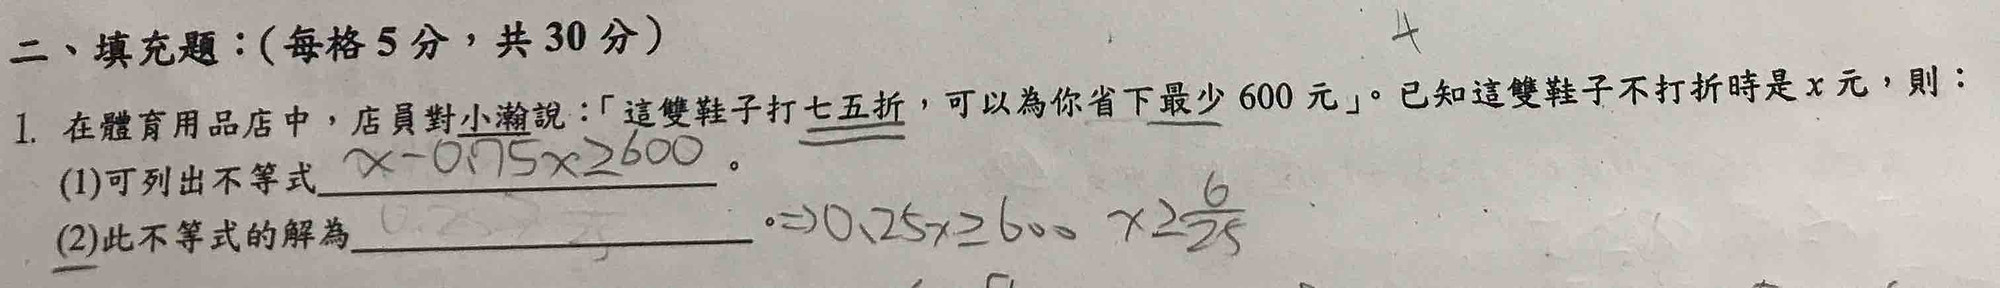 4
二、填充題：(每格 5 分，共 30 分)
1. 在體育用品店中，店員對小瀚說：「這雙鞋子打七五折，可以為你省下最少 600 元」。已知這雙鞋子不打折時是 x 元，則：
(1)可列出不等式 x-0.75x≥600 。
(2)此不等式的解為 。⇒0.25x≥600 x≥6/25